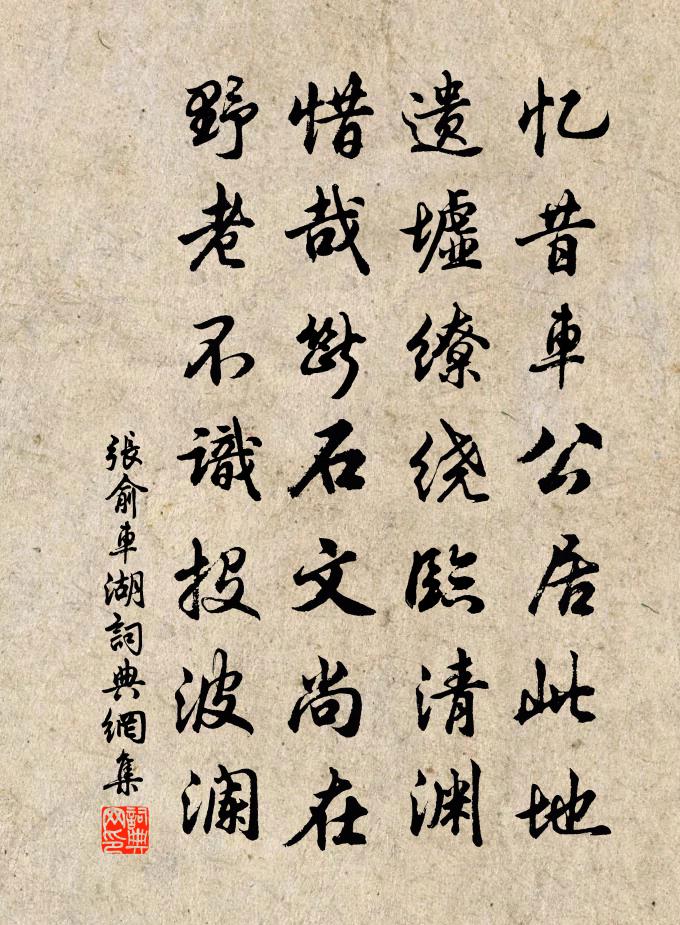 忆昔車公居此地
遗墟缭绕臨清渊
惜哉断石文尚在
野老不識投波澜
張俞車湖詞典網集
詞典网印